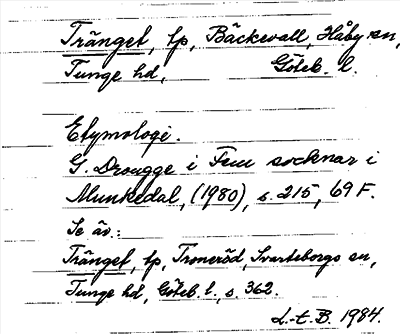 Tränget, tp, Bäckevall, Håby sn,
Tunge hd, Göteb. l.
Etymologi.
G. Drougge i Fem socknar i
Munkedal, (1980), s. 215, 69 F.
Se äv.:
Tränget, tp, Tromeröd, Svarteborgs sn,
Tunge hd, Göteb. l., s. 362.
L.-E. B. 1984.